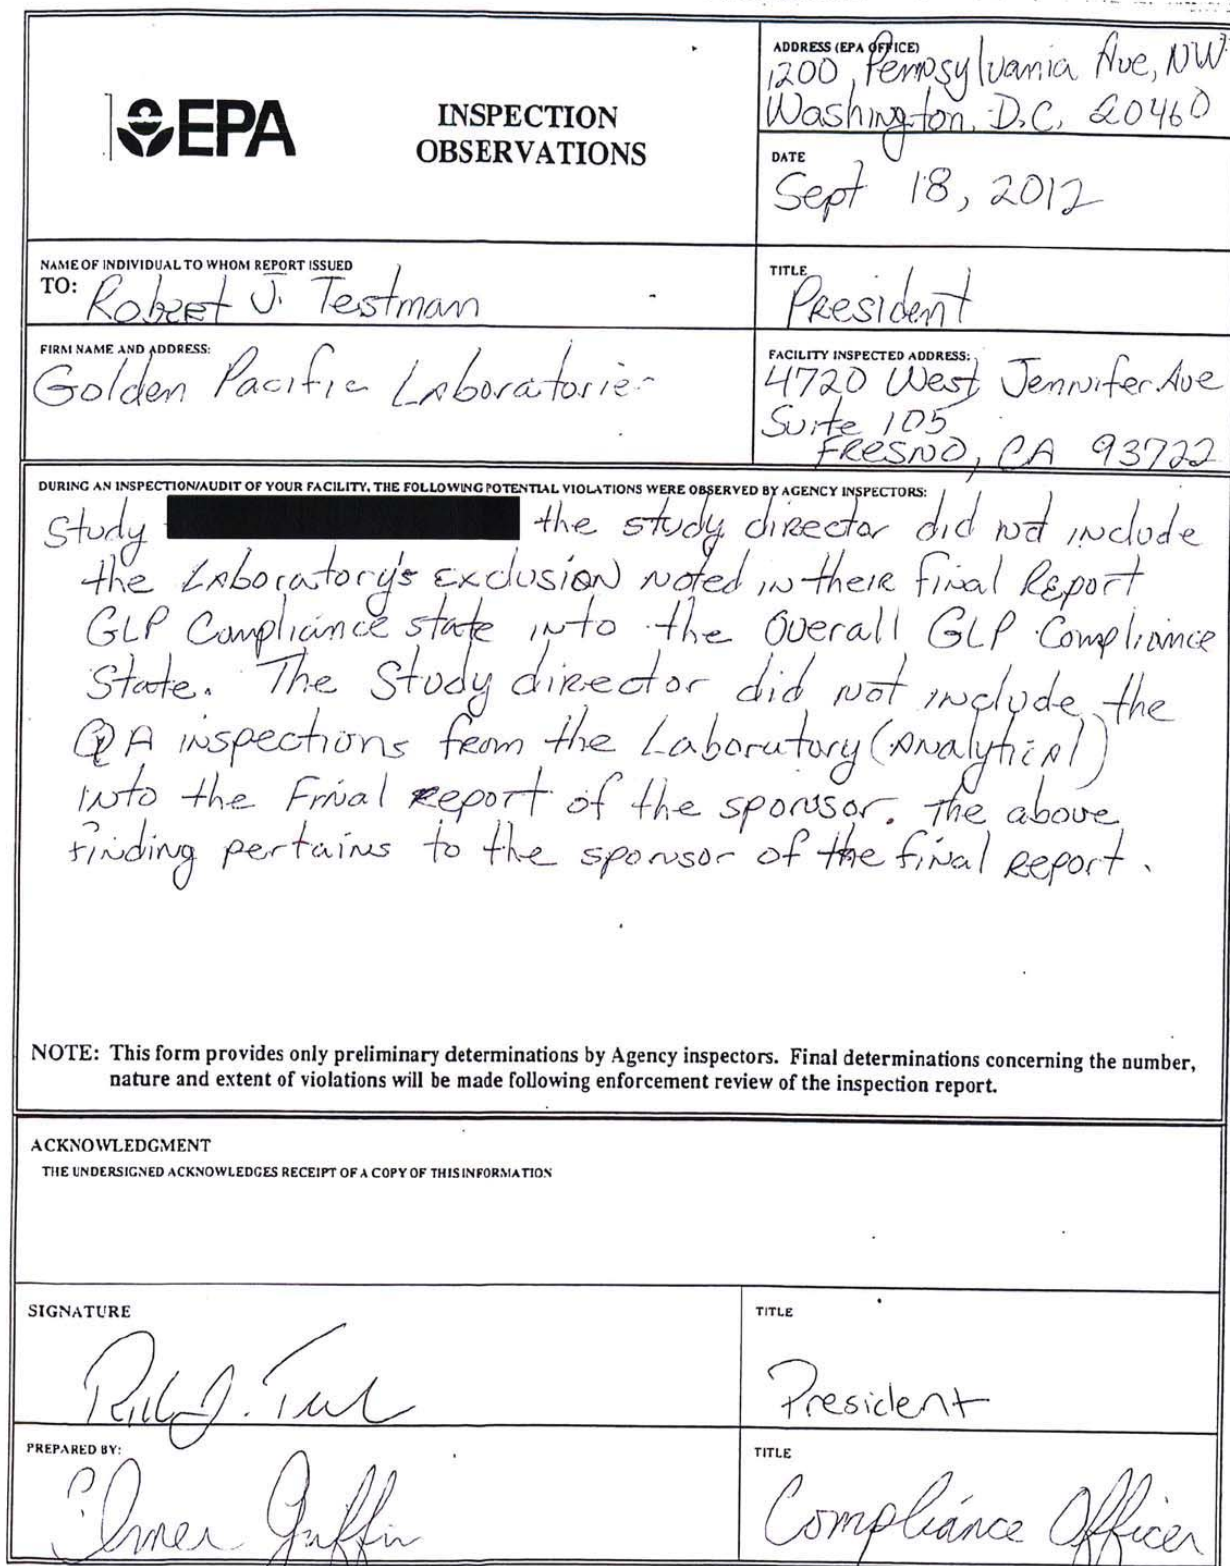 EPA
INSPECTION
OBSERVATIONS
ADDRESS (EPA OFFICE)
1200, Pennsylvania Ave, NW
Washington, D.C. 20460
DATE
Sept 18, 2012
NAME OF INDIVIDUAL TO WHOM REPORT ISSUED
TO: Robert J. Testman
TITLE
President
FIRM NAME AND ADDRESS:
Golden Pacific Laboratories
FACILITY INSPECTED ADDRESS:
4720 West Jennifer Ave
Suite 105
FRESNO, CA 93722
DURING AN INSPECTION/AUDIT OF YOUR FACILITY, THE FOLLOWING POTENTIAL VIOLATIONS WERE OBSERVED BY AGENCY INSPECTORS:
Study the study director did not include
the Laboratory's exclusion noted in their final Report
GLP Compliance state into the Overall GLP Compliance
State. The Study director did not include the
QA inspections from the Laboratory (Analytical)
into the Final report of the sponsor. The above
finding pertains to the sponsor of the final report.
NOTE: This form provides only preliminary determinations by Agency inspectors. Final determinations concerning the number,
nature and extent of violations will be made following enforcement review of the inspection report.
ACKNOWLEDGMENT
THE UNDERSIGNED ACKNOWLEDGES RECEIPT OF A COPY OF THIS INFORMATION
SIGNATURE
TITLE
President
PREPARED BY:
TITLE
Compliance Officer